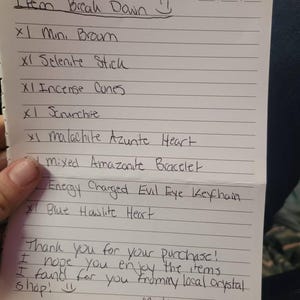 Item Break Down
x1 Mini Broom
x1 Selenite Stick
x1 Incense Cones
x1 Scrunchie
x1 Malachite Azurite Heart
x1 mixed Amazonite Bracelet
Energy Charged Evil Eye Keychain
x1 Blue Howlite Heart
Thank you for your purchase!
I hope you enjoy the items
I found for you from my local crystal
shop!